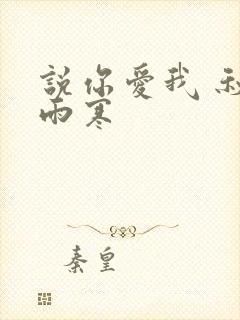 說你愛我
雨寒
秦皇